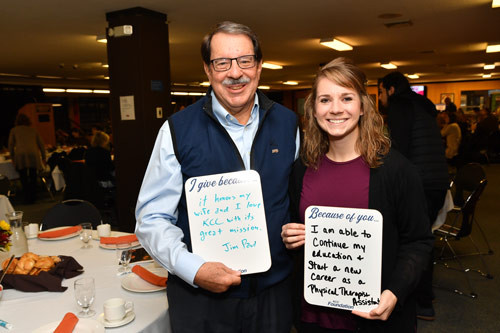 I give because...
it honors my
wife and I love
KCC with its
great mission.
Jim
Because of you...
I am able to
Continue my
education +
Start a new
career as a
Physical Therapist
Assistant
Foundation